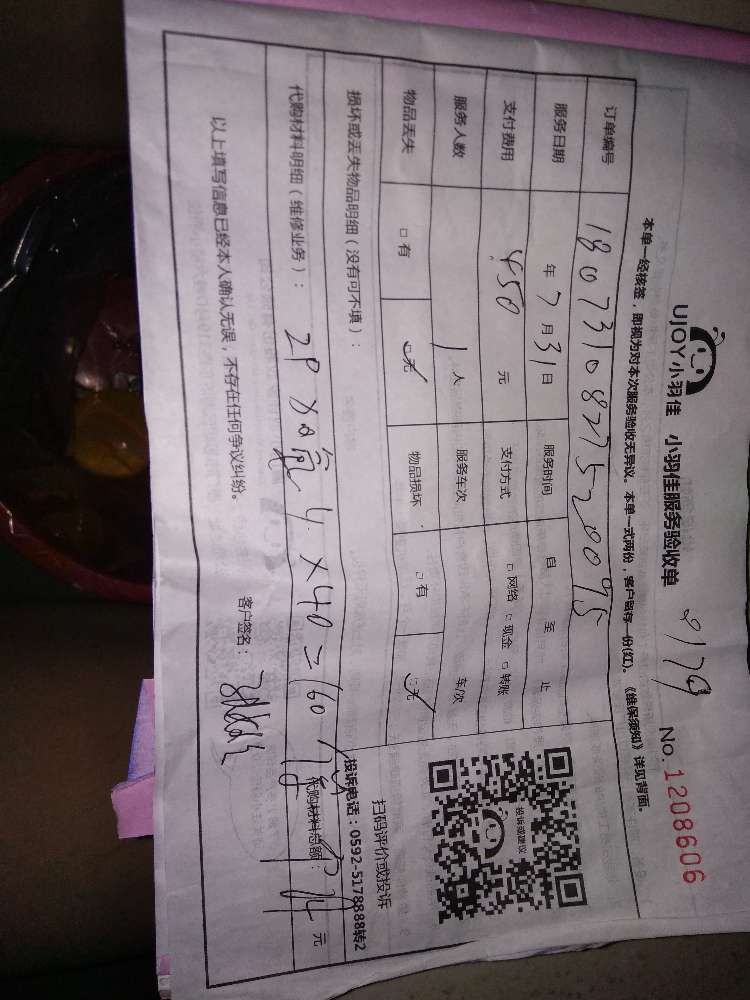 UJOY小羽佳 小羽佳服务验收单
No.1208606
本单一经核签，即视为对本次服务验收无异议。本单一式两份，客户留存一份(红)。《维保须知》详见背面。
订单编号 1807310827520095
服务日期 年 7 月 31 日 服务时间 自 至 止
支付费用 450 元 支付方式 □网络 □现金 □转账
服务人数 1 人 服务车次 车/次
物品丢失 □有 □无 物品损坏 □有 □无
投诉或建议
扫码评价或投诉
投诉电话：0592-5178888转2
损坏或丢失物品明细（没有可不填）：
代购材料明细（维修业务）：
4×40=160
代购材料总额： 元
以上填写信息已经本人确认无误，不存在任何争议纠纷。
客户签名：